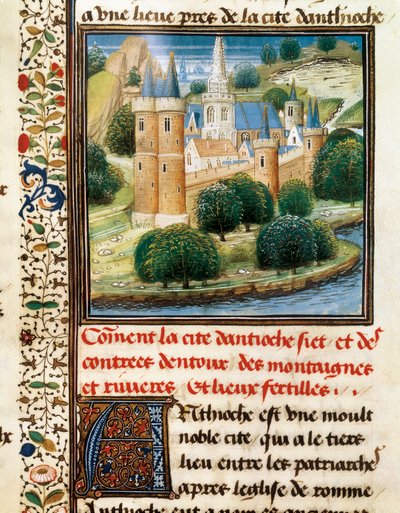 a vne lieue pres de la cite danthioche
Coment la cite dantioche siet et des
contrees dentour des montaignes
et riuieres Et lieux fertilles .
ANthioche est vne moult
noble cite qui a le tiers
lieu entre les patriarche
apres leglise de romme